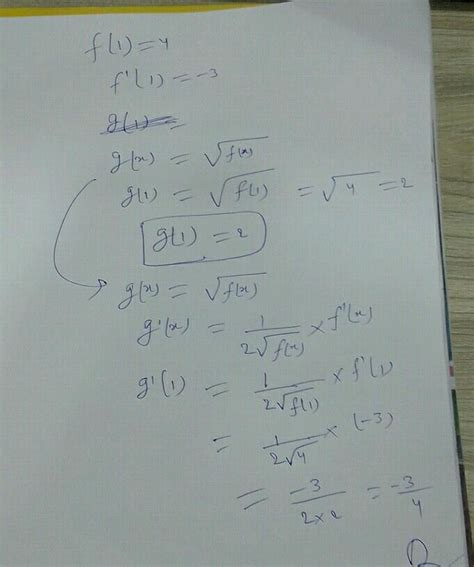 f(1) = 4
f'(1) = -3
g(1) =
g(x) = √f(x)
g(1) = √f(1) = √4 = 2
g(1) = 2
g(x) = √f(x)
g'(x) = 1/2√f(x) × f'(x)
g'(1) = 1/2√f(1) × f'(1)
= 1/2√4 × (-3)
= -3/2×2 = -3/4